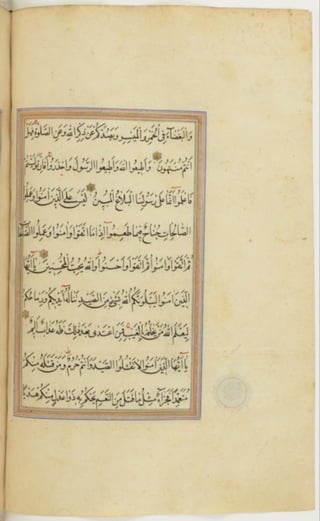 والبغضاء في الخمر والميسر ويصدكم عن ذكر الله وعن الصلوة فهل
انتم منتهون واطيعوا الله واطيعوا الرسول واحذروا فان توليتم
فاعلموا انما على رسولنا البلاغ المبين ليس على الذين امنوا وعملوا
الصالحات جناح فيما طعموا اذا ما اتقوا وامنوا وعملوا الصالحات
ثم اتقوا وامنوا ثم اتقوا واحسنوا والله يحب المحسنين يا ايها
الذين امنوا ليبلونكم الله بشئ من الصيد تناله ايديكم ورماحكم
ليعلم الله من يخافه بالغيب فمن اعتدى بعد ذلك فله عذاب اليم
يا ايها الذين امنوا لا تقتلوا الصيد وانتم حرم ومن قتله منكم
متعمدا فجزاء مثل ما قتل من النعم يحكم به ذوا عدل منكم هديا